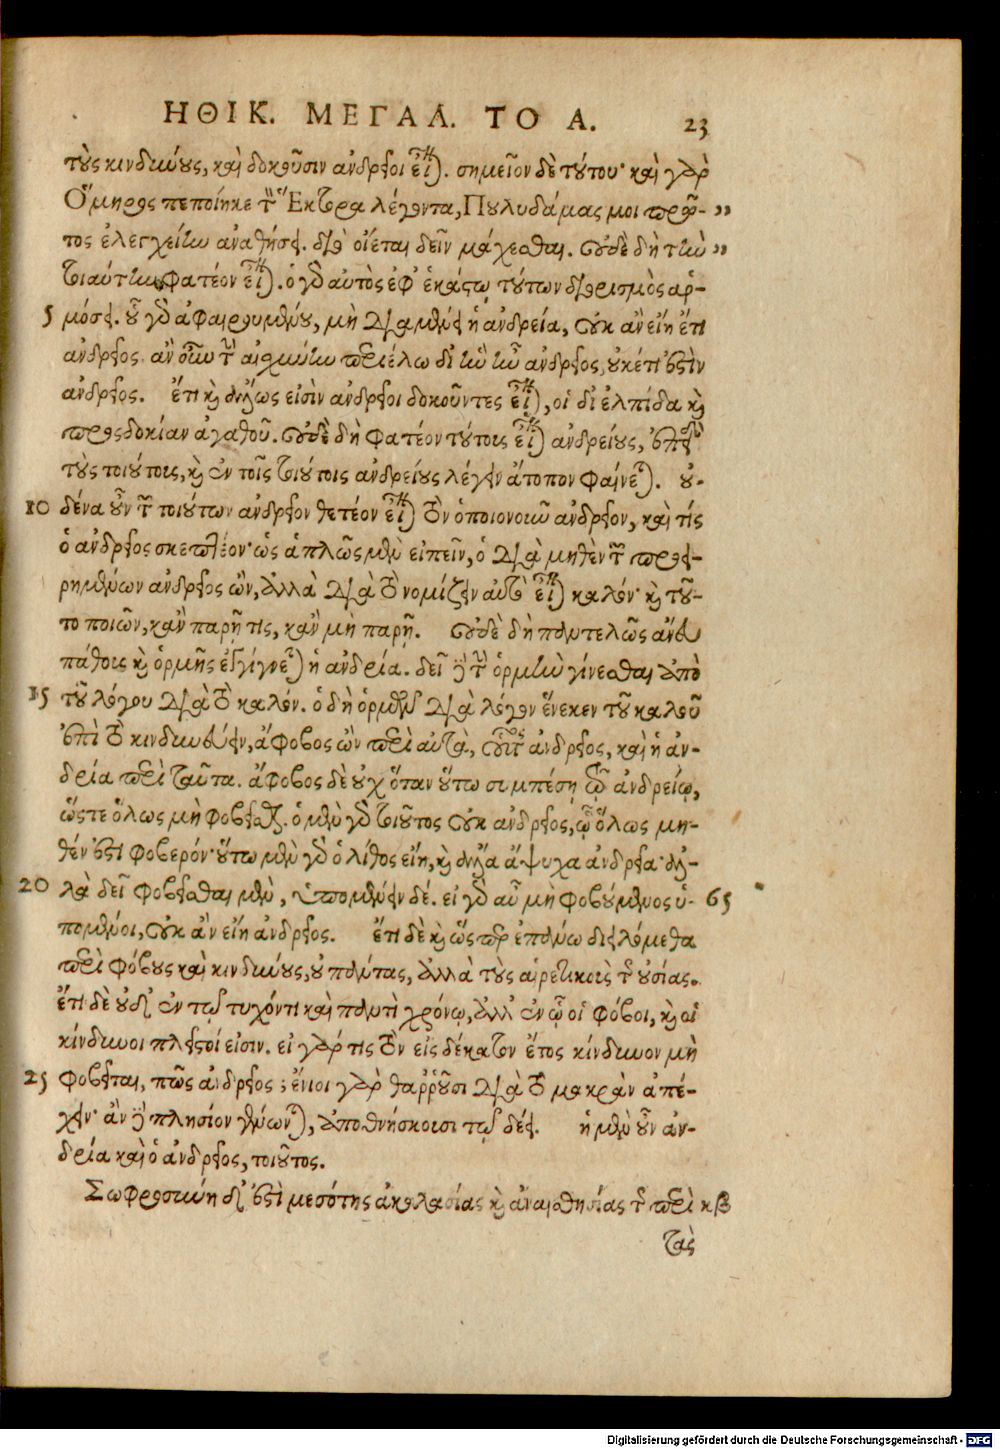 ΗΘΙΚ. ΜΕΓΑΛ. ΤΟ Α. 23
τοὺς κινδύνους, καὶ δοκοῦσιν ἀνδρεῖοι εἶναι. σημεῖον δὲ τούτου· καὶ γὰρ
Ὅμηρος πεποίηκε τὸν Ἕκτορα λέγοντα, Πουλυδάμας μοι πρῶ- ”
τος ἐλεγχείην ἀναθήσει. διὸ οἴεται δεῖν μάχεσθαι. οὐδὲ δὴ τὴν ”
τοιαύτην φατέον εἶναι. ὁ γὰρ αὐτὸς ἐφ’ ἑκάστῳ τούτων διορισμὸς ἁρ-
5 μόσει. οὗ γὰρ ἀφαιρουμένου, μὴ διαμένει ἡ ἀνδρεία, οὐκ ἂν εἴη ἔτι
ἀνδρεῖος. ἂν οὖν τὴν αἰσχύνην περιέλω δι’ ἣν ἦν ἀνδρεῖος, οὐκέτι ἐστὶν
ἀνδρεῖος. ἔτι καὶ ἄλλως εἰσὶν ἀνδρεῖοι δοκοῦντες εἶναι, οἱ δι’ ἐλπίδα καὶ
προσδοκίαν ἀγαθοῦ. οὐδὲ δὴ φατέον τούτους εἶναι ἀνδρείους, ἐπειδὴ
τοὺς τοιούτους, καὶ ἐν τοῖς τοιούτοις ἀνδρείους λέγειν ἄτοπον φαίνεται. οὐ-
10 δένα οὖν τῶν τοιούτων ἀνδρεῖον θετέον εἶναι τὸν ὁποιονοιοῦν ἀνδρεῖον, καὶ τίς
ὁ ἀνδρεῖος σκεπτέον· ὡς ἁπλῶς μὲν εἰπεῖν, ὁ διὰ μηθὲν τῶν προει-
ρημένων ἀνδρεῖος ὢν, ἀλλὰ διὰ τὸ νομίζειν αὐτὸ εἶναι καλόν· καὶ τοῦ-
το ποιῶν, κἂν παρῇ τις, κἂν μὴ παρῇ. οὐδὲ δὴ παντελῶς ἄνευ
πάθους καὶ ὁρμῆς ἐγγίγνεται ἡ ἀνδρία. δεῖ δὲ τὴν ὁρμὴν γίνεσθαι ἀπὸ
15 τοῦ λόγου διὰ τὸ καλόν. ὁ δὴ ὁρμῶν διὰ λόγον ἕνεκεν τοῦ καλοῦ
ἐπὶ τὸ κινδυνεύειν, ἄφοβος ὢν περὶ αὐτὰ, οὗτος ἀνδρεῖος, καὶ ἡ ἀν-
δρία περὶ ταῦτα. ἄφοβος δὲ οὐχ ὅταν οὕτω συμπέσῃ τῷ ἀνδρείῳ,
ὥστε ὅλως μὴ φοβεῖσθαι. ὁ μὲν γὰρ τοιοῦτος οὐκ ἀνδρεῖος, ᾧ ὅλως μη-
θέν ἐστι φοβερόν· οὕτω μὲν γὰρ ὁ λίθος εἴη, καὶ ἄλλα ἄψυχα ἀνδρεῖα· ἀλ-
20 λὰ δεῖ φοβεῖσθαι μὲν, ὑπομένειν δέ. εἰ γὰρ αὖ μὴ φοβούμενος ὑ- 65
πομένοι, οὐκ ἂν εἴη ἀνδρεῖος. ἔτι δὲ καὶ ὥσπερ ἐπάνω διειλόμεθα
περὶ φόβους καὶ κινδύνους, οὐ πάντας, ἀλλὰ τοὺς ἀναιρετικοὺς τῆς οὐσίας.
ἔτι δὲ οὐδ’ ἐν τῷ τυχόντι καὶ παντὶ χρόνῳ, ἀλλ’ ἐν ᾧ οἱ φόβοι, καὶ οἱ
κίνδυνοι πλησίοι εἰσιν. εἰ γάρ τις τὸν εἰς δέκατον ἔτος κίνδυνον μὴ
25 φοβεῖται, πῶς ἀνδρεῖος; ἔνιοι γὰρ θαῤῥοῦσι διὰ τὸ μακρὰν ἀπέ-
χειν· ἂν δὲ πλησίον γένωνται, ἀποθνήσκουσι τῷ δέει. ἡ μὲν οὖν ἀν-
δρία καὶ ὁ ἀνδρεῖος, τοιοῦτος.
Σωφροσύνη δ’ ἐστὶ μεσότης ἀκολασίας καὶ ἀναισθησίας τῆς περὶ κβ
τὰς
Digitalisierung gefördert durch die Deutsche Forschungsgemeinschaft - DFG